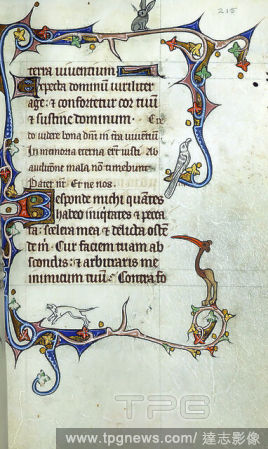 215
terra viventium
Expecta dominum viriliter
age: & confortetur cor tuū
& sustine dominum. Cre
do videre bona dñi in t̃ra viventiū
In memoria eterna erit iustꝰ. Ab
auditione mala non timebunt
Pater nr̃. Et ne nos.
Responde michi quātes
habeo iniq̃tates & pecca
ta: scelera mea & delicta oste
de m̃. Cur faciem tuam ab
scondis: & arbitraris me
inimicum tuū. Contra fo
TPG
www.tpgnews.com/達志影像